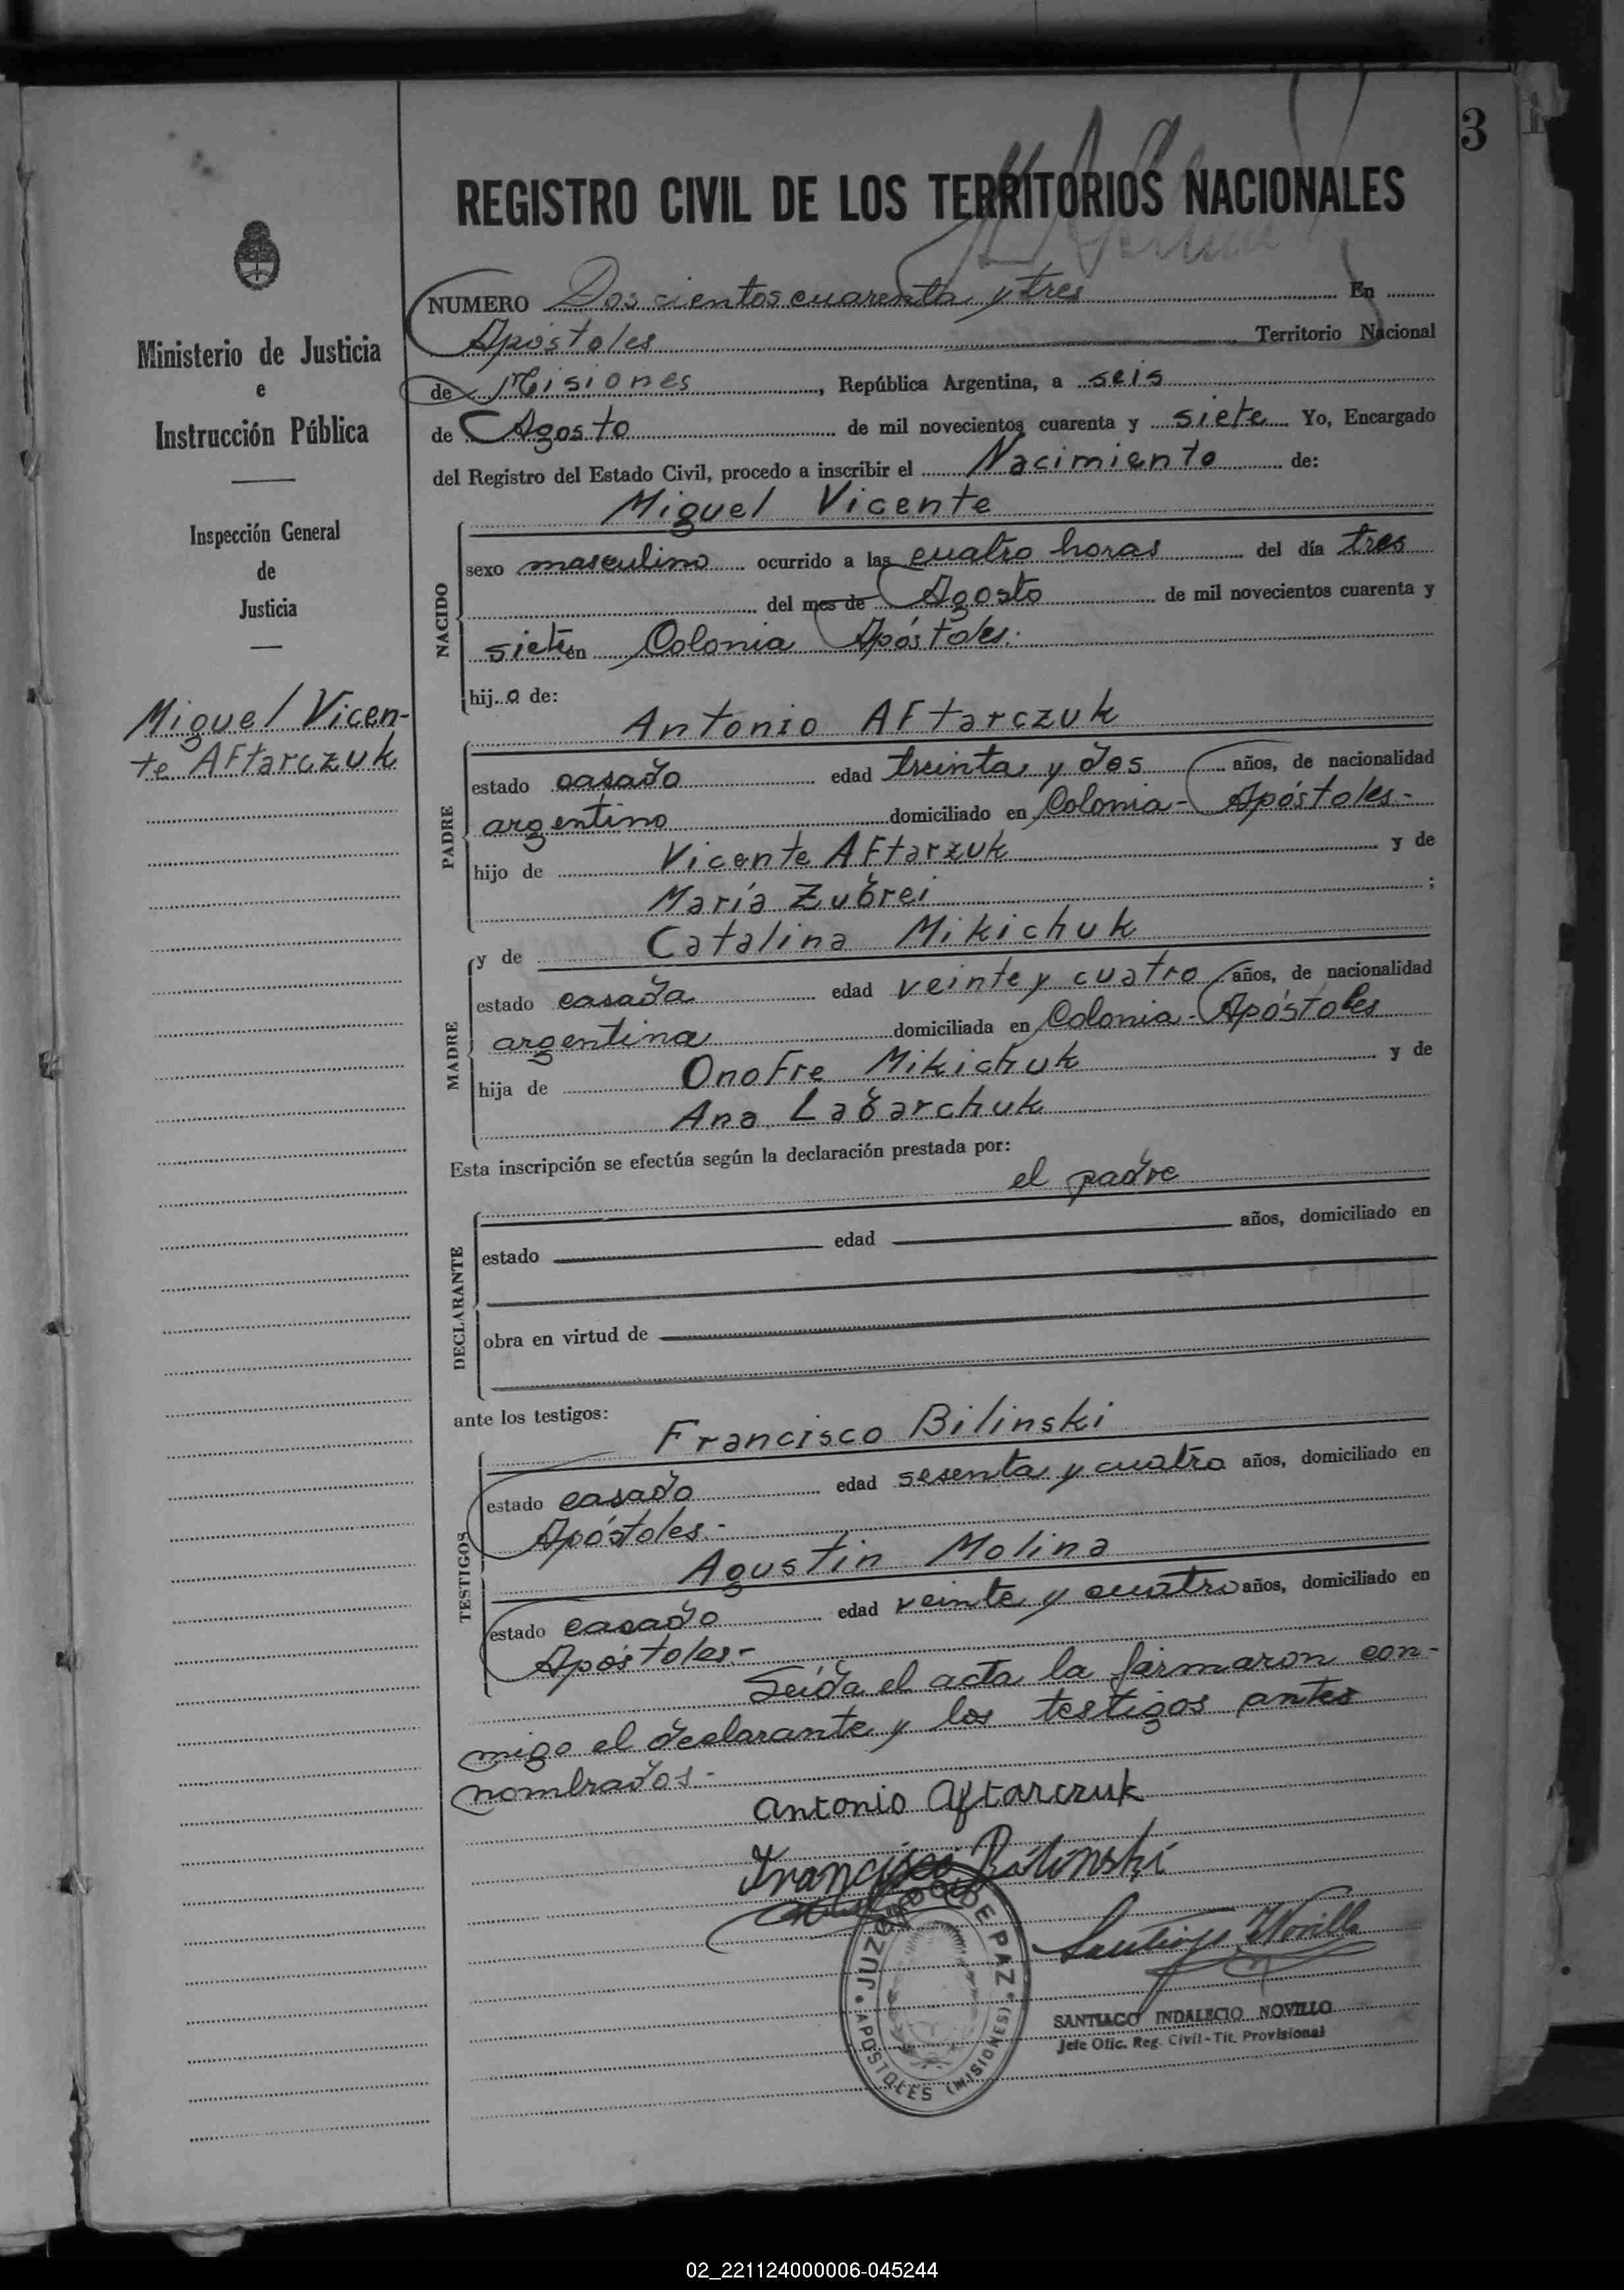 3
REGISTRO CIVIL DE LOS TERRITORIOS NACIONALES
Ministerio de Justicia
e
Instrucción Pública
Inspección General
de
Justicia
Miguel Vicen-
te Aftarczuk
NUMERO Doscientos cuarenta y tres En
Apóstoles Territorio Nacional
de Misiones, República Argentina, a seis
de Agosto de mil novecientos cuarenta y siete Yo, Encargado
del Registro del Estado Civil, procedo a inscribir el Nacimiento de:
Miguel Vicente
NACIDO
sexo masculino ocurrido a las cuatro horas del día tres
del mes de Agosto de mil novecientos cuarenta y
siete en Colonia Apóstoles.
hijo de:
Antonio Aftarczuk
PADRE
estado casado edad treinta y dos años, de nacionalidad
argentino domiciliado en Colonia - Apóstoles -
hijo de Vicente Aftarzuk y de
María Zubrei ;
y de Catalina Mikichuk
MADRE
estado casada edad veinte y cuatro años, de nacionalidad
argentina domiciliada en Colonia - Apóstoles
hija de Onofre Mikichuk y de
Ana Labarchuk
Esta inscripción se efectúa según la declaración prestada por:
el padre
DECLARANTE
estado edad años, domiciliado en
obra en virtud de
ante los testigos:
Francisco Bilinski
TESTIGOS
estado casado edad sesenta y cuatro años, domiciliado en
Apóstoles -
Agustin Molina
estado casado edad veinte y cuatro años, domiciliado en
Apóstoles -
Leída el acta la firmaron con-
migo el declarante y los testigos antes
nombrados -
Antonio Aftarczuk
Francisco Bilinski
JUZGADO DE PAZ
APOSTOLES (MISIONES)
Santiago Novillo
SANTIAGO INDALECIO NOVILLO
Jefe Ofic. Reg. Civil - Tit. Provisional
02_221124000006-045244